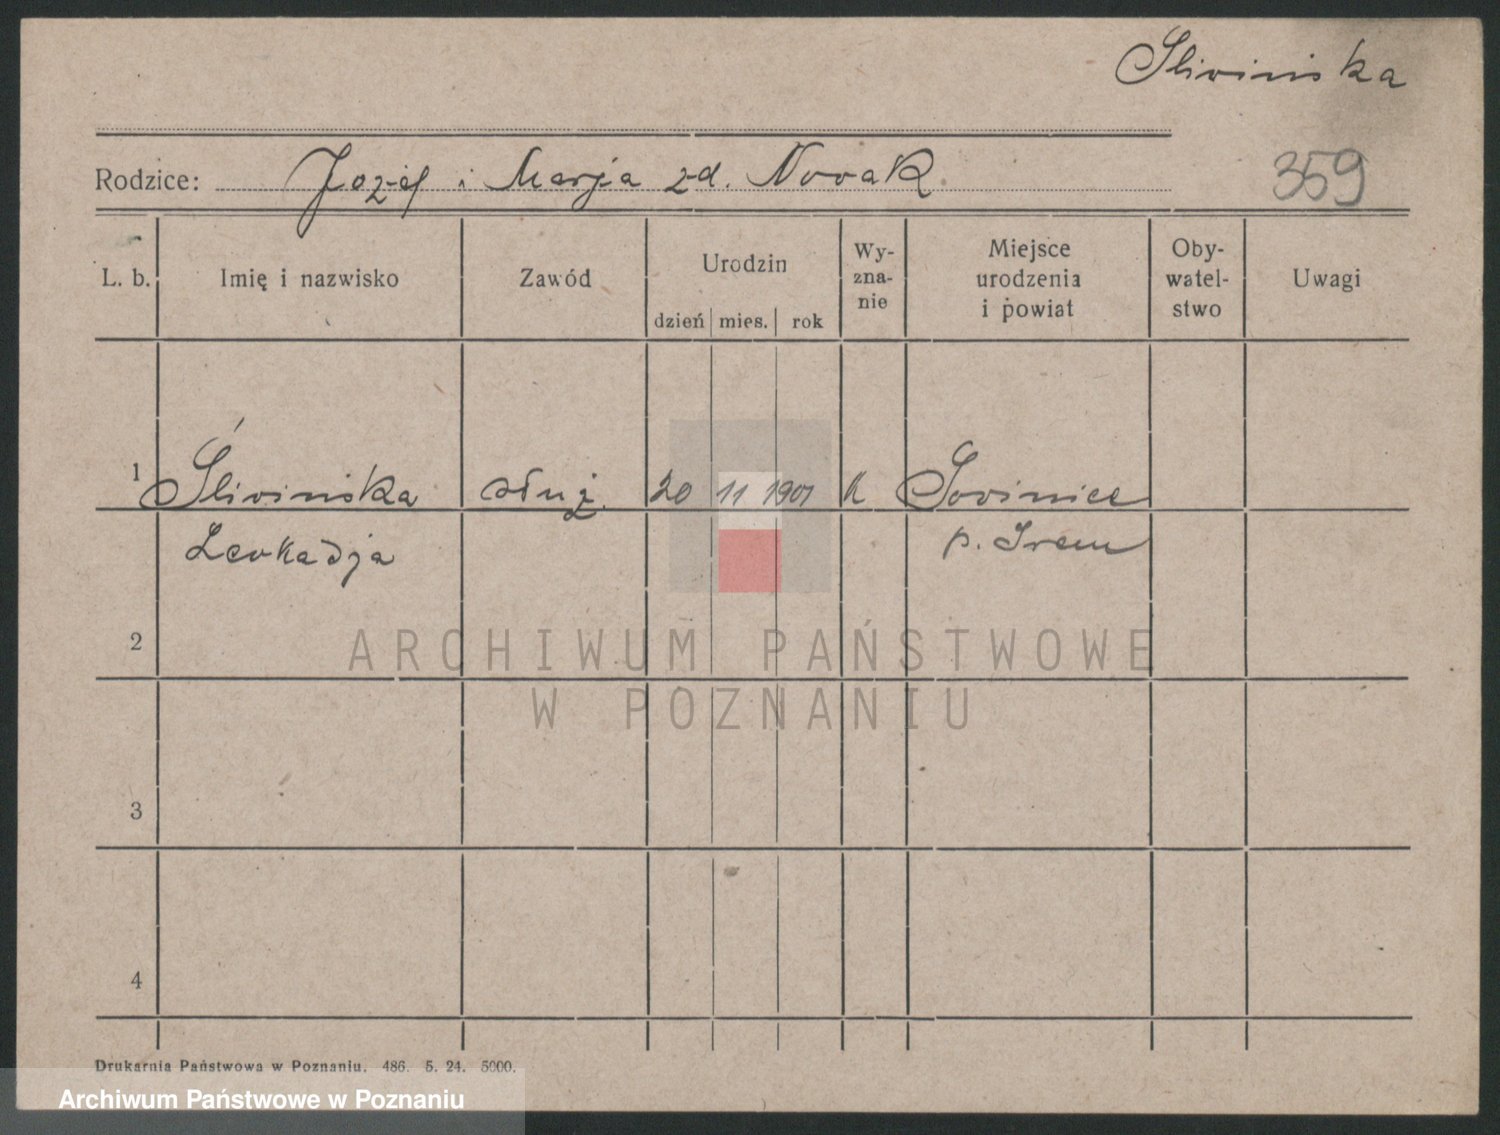 Slivinska
Rodzice: Jozef i Marja zd. Novak
359
L. b.
Imię i nazwisko
Zawód
Urodzin
dzień mies. rok
Wy-
zna-
nie
Miejsce
urodzenia
i powiat
Oby-
watel-
stwo
Uwagi
1 Ślivinska służ. 20 11 1901 K Sovinice
Leokadja p. Srem
2
3
4
ARCHIWUM PAŃSTWOWE
W POZNANIU
Drukarnia Państwowa w Poznaniu. 486. 5. 24. 5000.
Archiwum Państwowe w Poznaniu